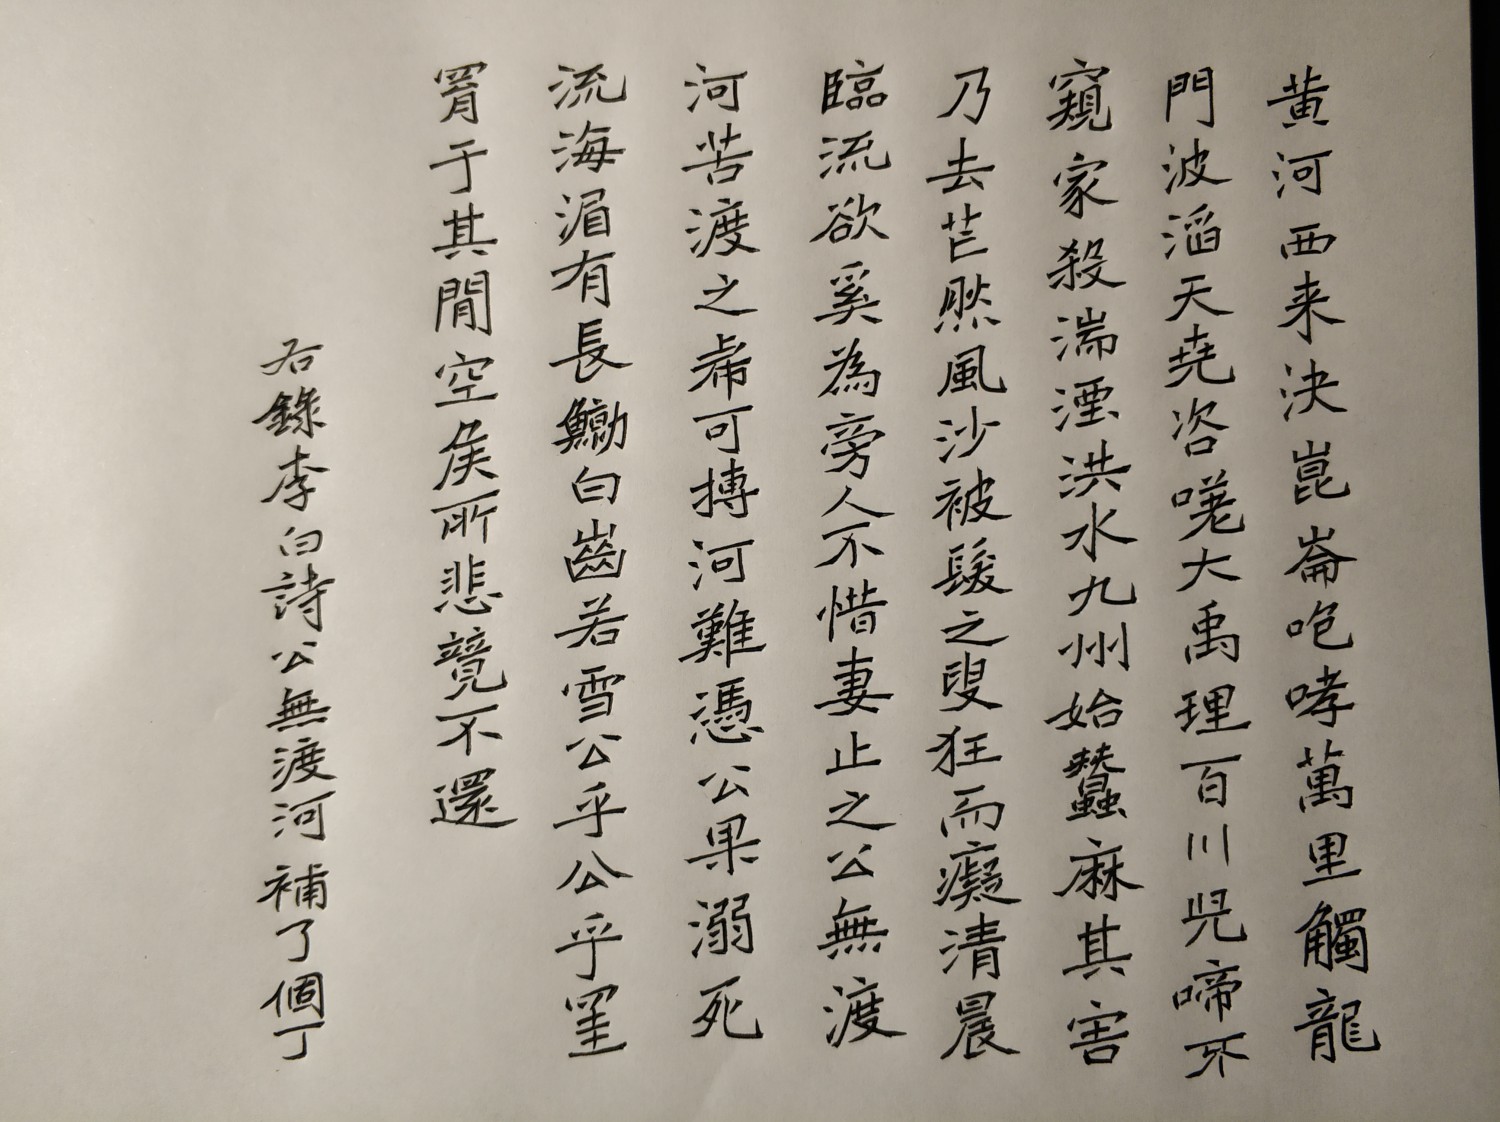 黄河西来決崑崙咆哮萬里觸龍
門波滔天堯咨嘆大禹理百川児啼不
窺家殺湍湮洪水九州始蠶麻其害
乃去茫然風沙被髮之叟狂而癡清晨
臨流欲奚為旁人不惜妻止之公無渡
河苦渡之乕可搏河難憑公果溺死
流海湄有長鯨白齒若雪公乎公乎罣
罥于其間空侯所悲竟不還
右錄李白詩公無渡河補了個丁